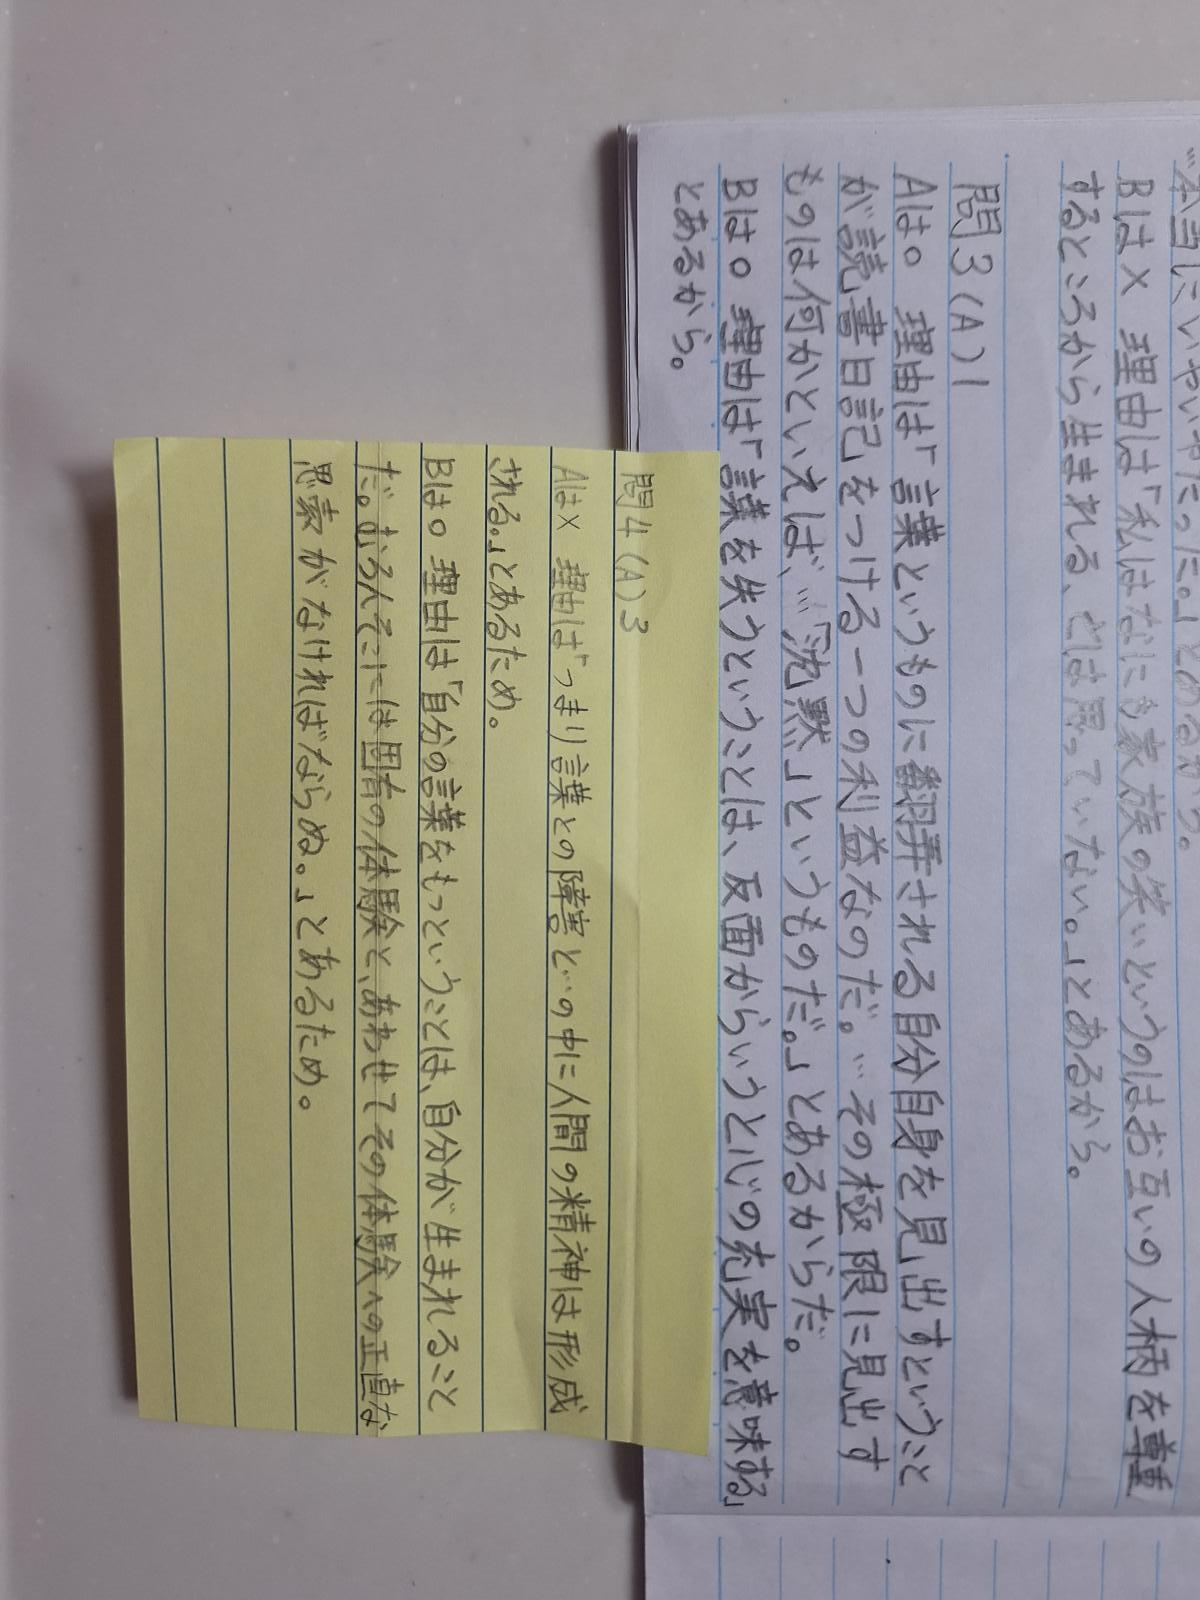 本当にいやいやだった。」とあるから。
Bは× 理由は「私はなにも家族の笑いというのはお互いの人柄を尊重
するところから生まれる、とは思っていない。」とあるから。
問3(A)1
Aは○ 理由は「言葉というものに翻弄される自分自身を見出すということ
が読書日記をつける一つの利益なのだ。…その極限に見出す
ものは何かといえば、…「沈黙」というものだ。」とあるからだ。
Bは○ 理由は「言葉を失うということは、反面からいうと心の充実を意味する」
とあるから。
問4(A)3
Aは× 理由は「つまり言葉との障害との中に人間の精神は形成
される。」とあるため。
Bは○ 理由は「自分の言葉をもつということは、自分が生まれること
だ。むろんそこには固有の体験と、あわせてその体験への正直な
思索がなければならぬ。」とあるため。